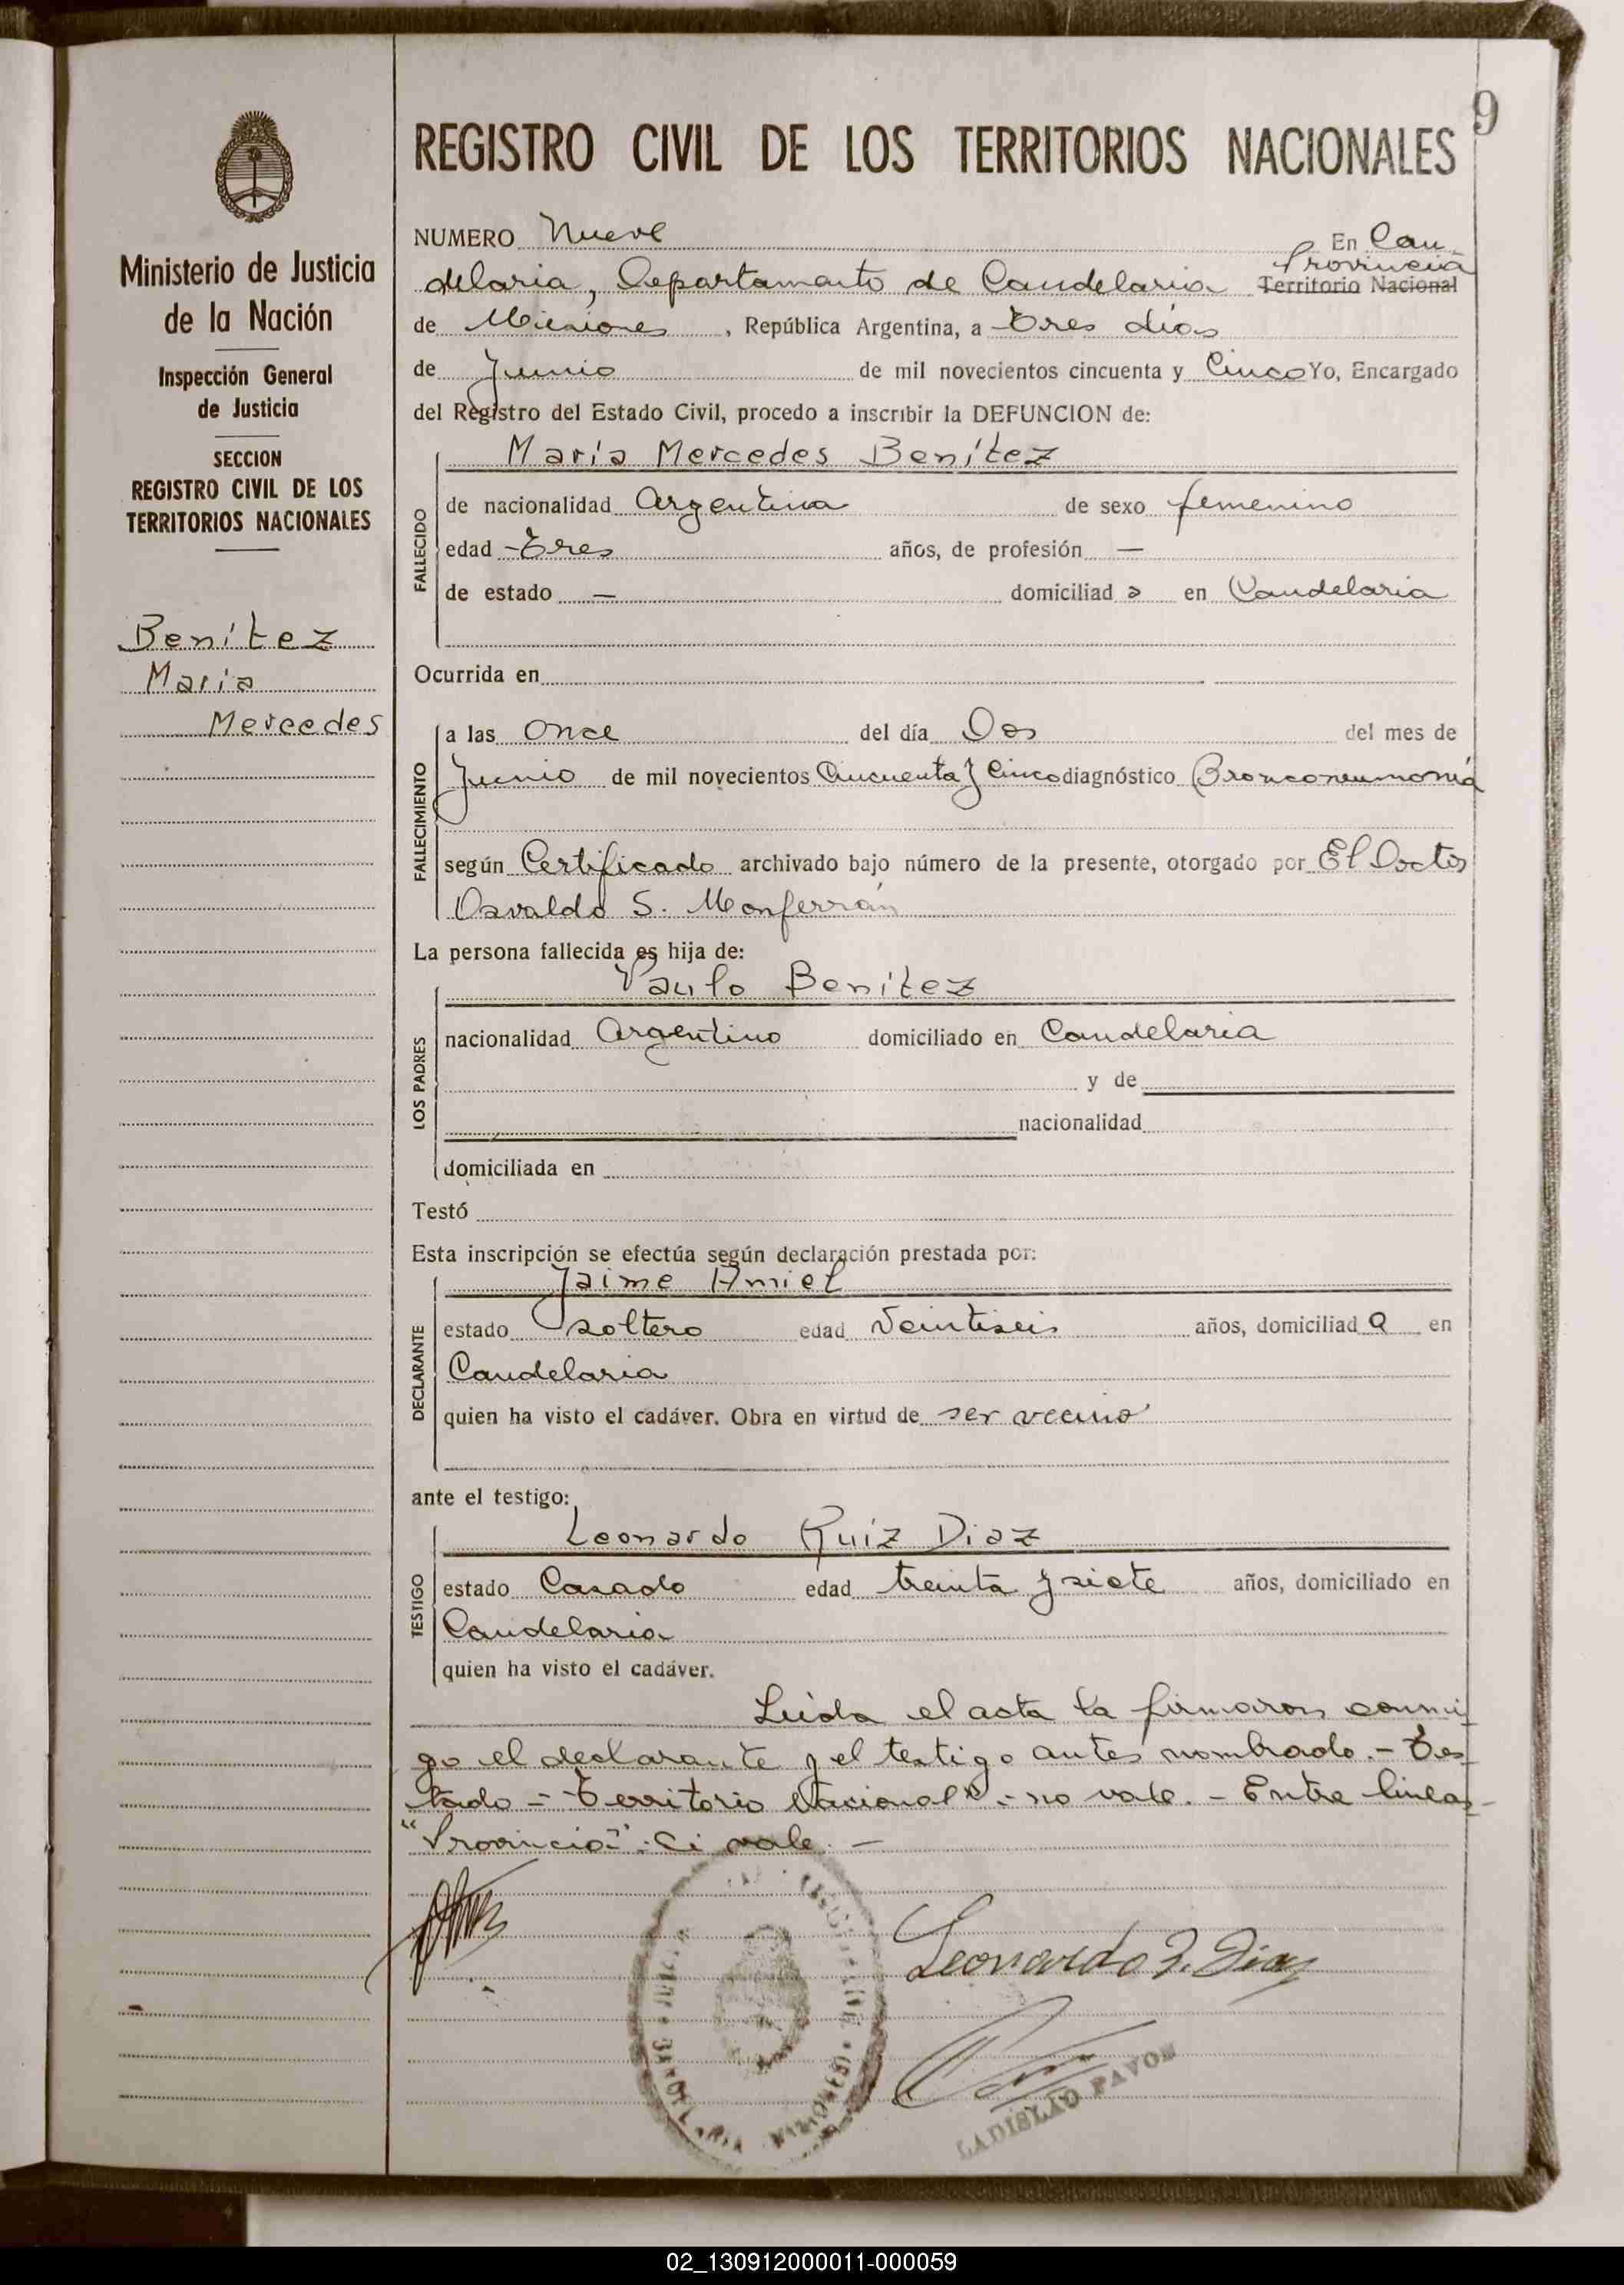 9
REGISTRO CIVIL DE LOS TERRITORIOS NACIONALES
Ministerio de Justicia
de la Nación
Inspección General
de Justicia
SECCION
REGISTRO CIVIL DE LOS
TERRITORIOS NACIONALES
Benítez
María
Mercedes
NUMERO Nueve En Can
Provincia
delaria, Departamento de Candelaria Territorio Nacional
de Misiones, República Argentina, a Tres días
de Junio de mil novecientos cincuenta y Cinco Yo, Encargado
del Registro del Estado Civil, procedo a inscribir la DEFUNCION de:
María Mercedes Benítez
FALLECIDO
de nacionalidad Argentina de sexo femenino
edad Tres años, de profesión —
de estado — domiciliad a en Candelaria
Ocurrida en
FALLECIMIENTO
a las Once del día Dos del mes de
Junio de mil novecientos Cincuenta y Cinco diagnóstico Bronconeumonía
según Certificado archivado bajo número de la presente, otorgado por El Doctor
Osvaldo S. Monferrán
La persona fallecida es hija de:
Paulo Benítez
LOS PADRES
nacionalidad Argentino domiciliado en Candelaria
y de
nacionalidad
domiciliada en
Testó
Esta inscripción se efectúa según declaración prestada por:
Jaime Amiel
DECLARANTE
estado soltero edad Veintiseis años, domiciliad o en
Candelaria
quien ha visto el cadáver. Obra en virtud de ser vecino
ante el testigo:
Leonardo Ruíz Diaz
TESTIGO
estado Casado edad treinta y siete años, domiciliado en
Candelaria
quien ha visto el cadáver.
Leida el acta la firmaron conmi
go el declarante y el testigo antes nombrado.- Tes
tado - Territorio Nacional" - no vale. - Entre lineas-
"Provincia": Si vale. —
Leonardo R. Diaz
CANDELARIA MISIONES
LADISLAO PAVON
02_130912000011-000059